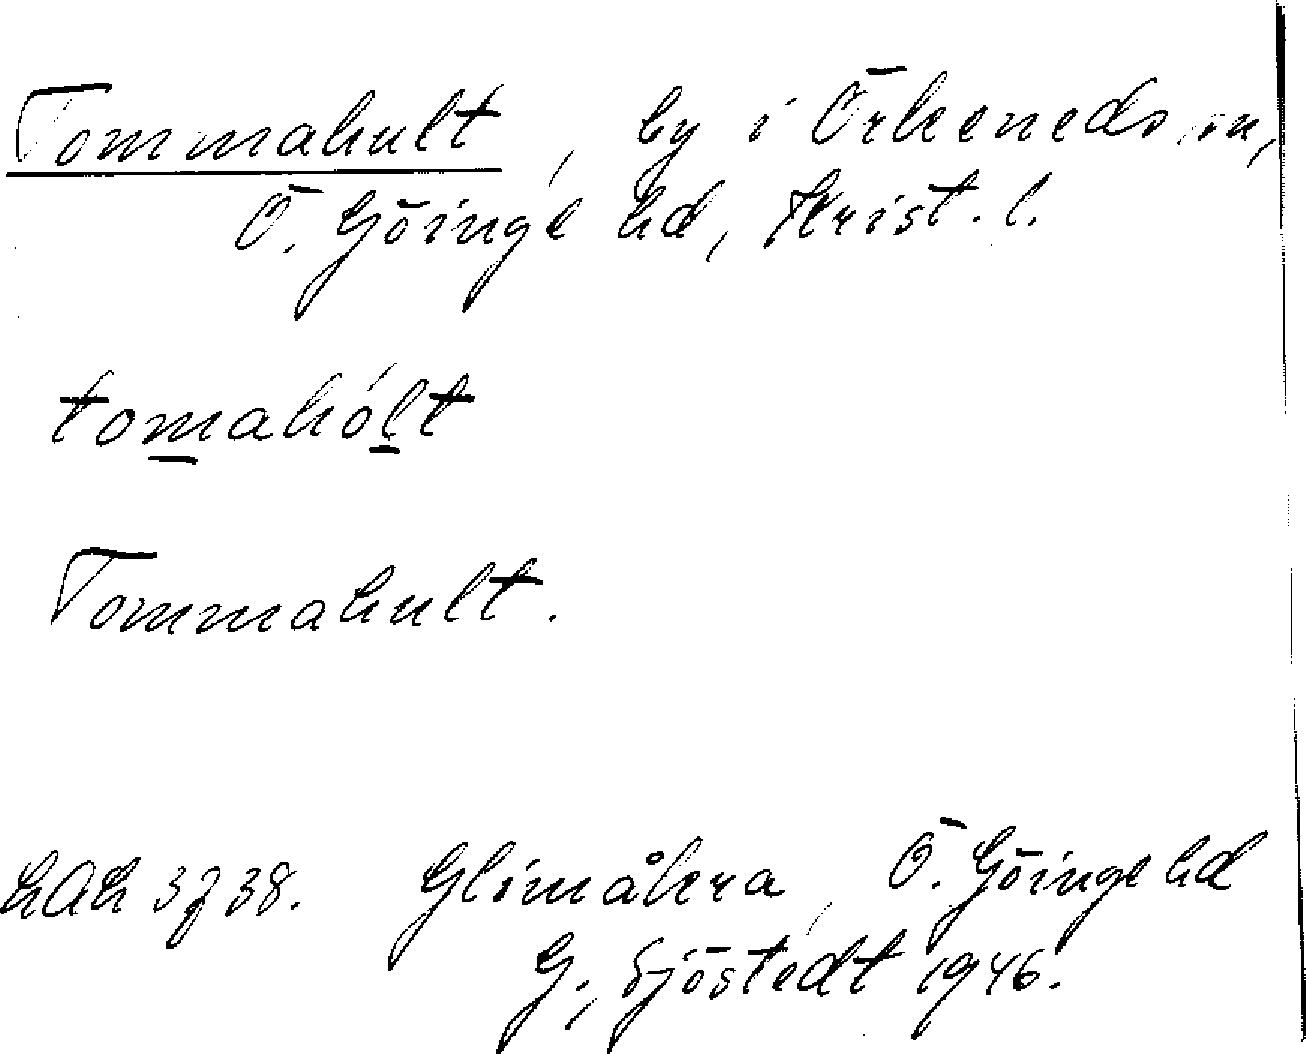 Tommahult, by i Örkeneds sn,
Ö. Göinge hd, Krist. l.
tomahólt
Tommahult.
LAL 3738. Glimåkra, Ö. Göinge hd
G. Sjöstedt 1946.